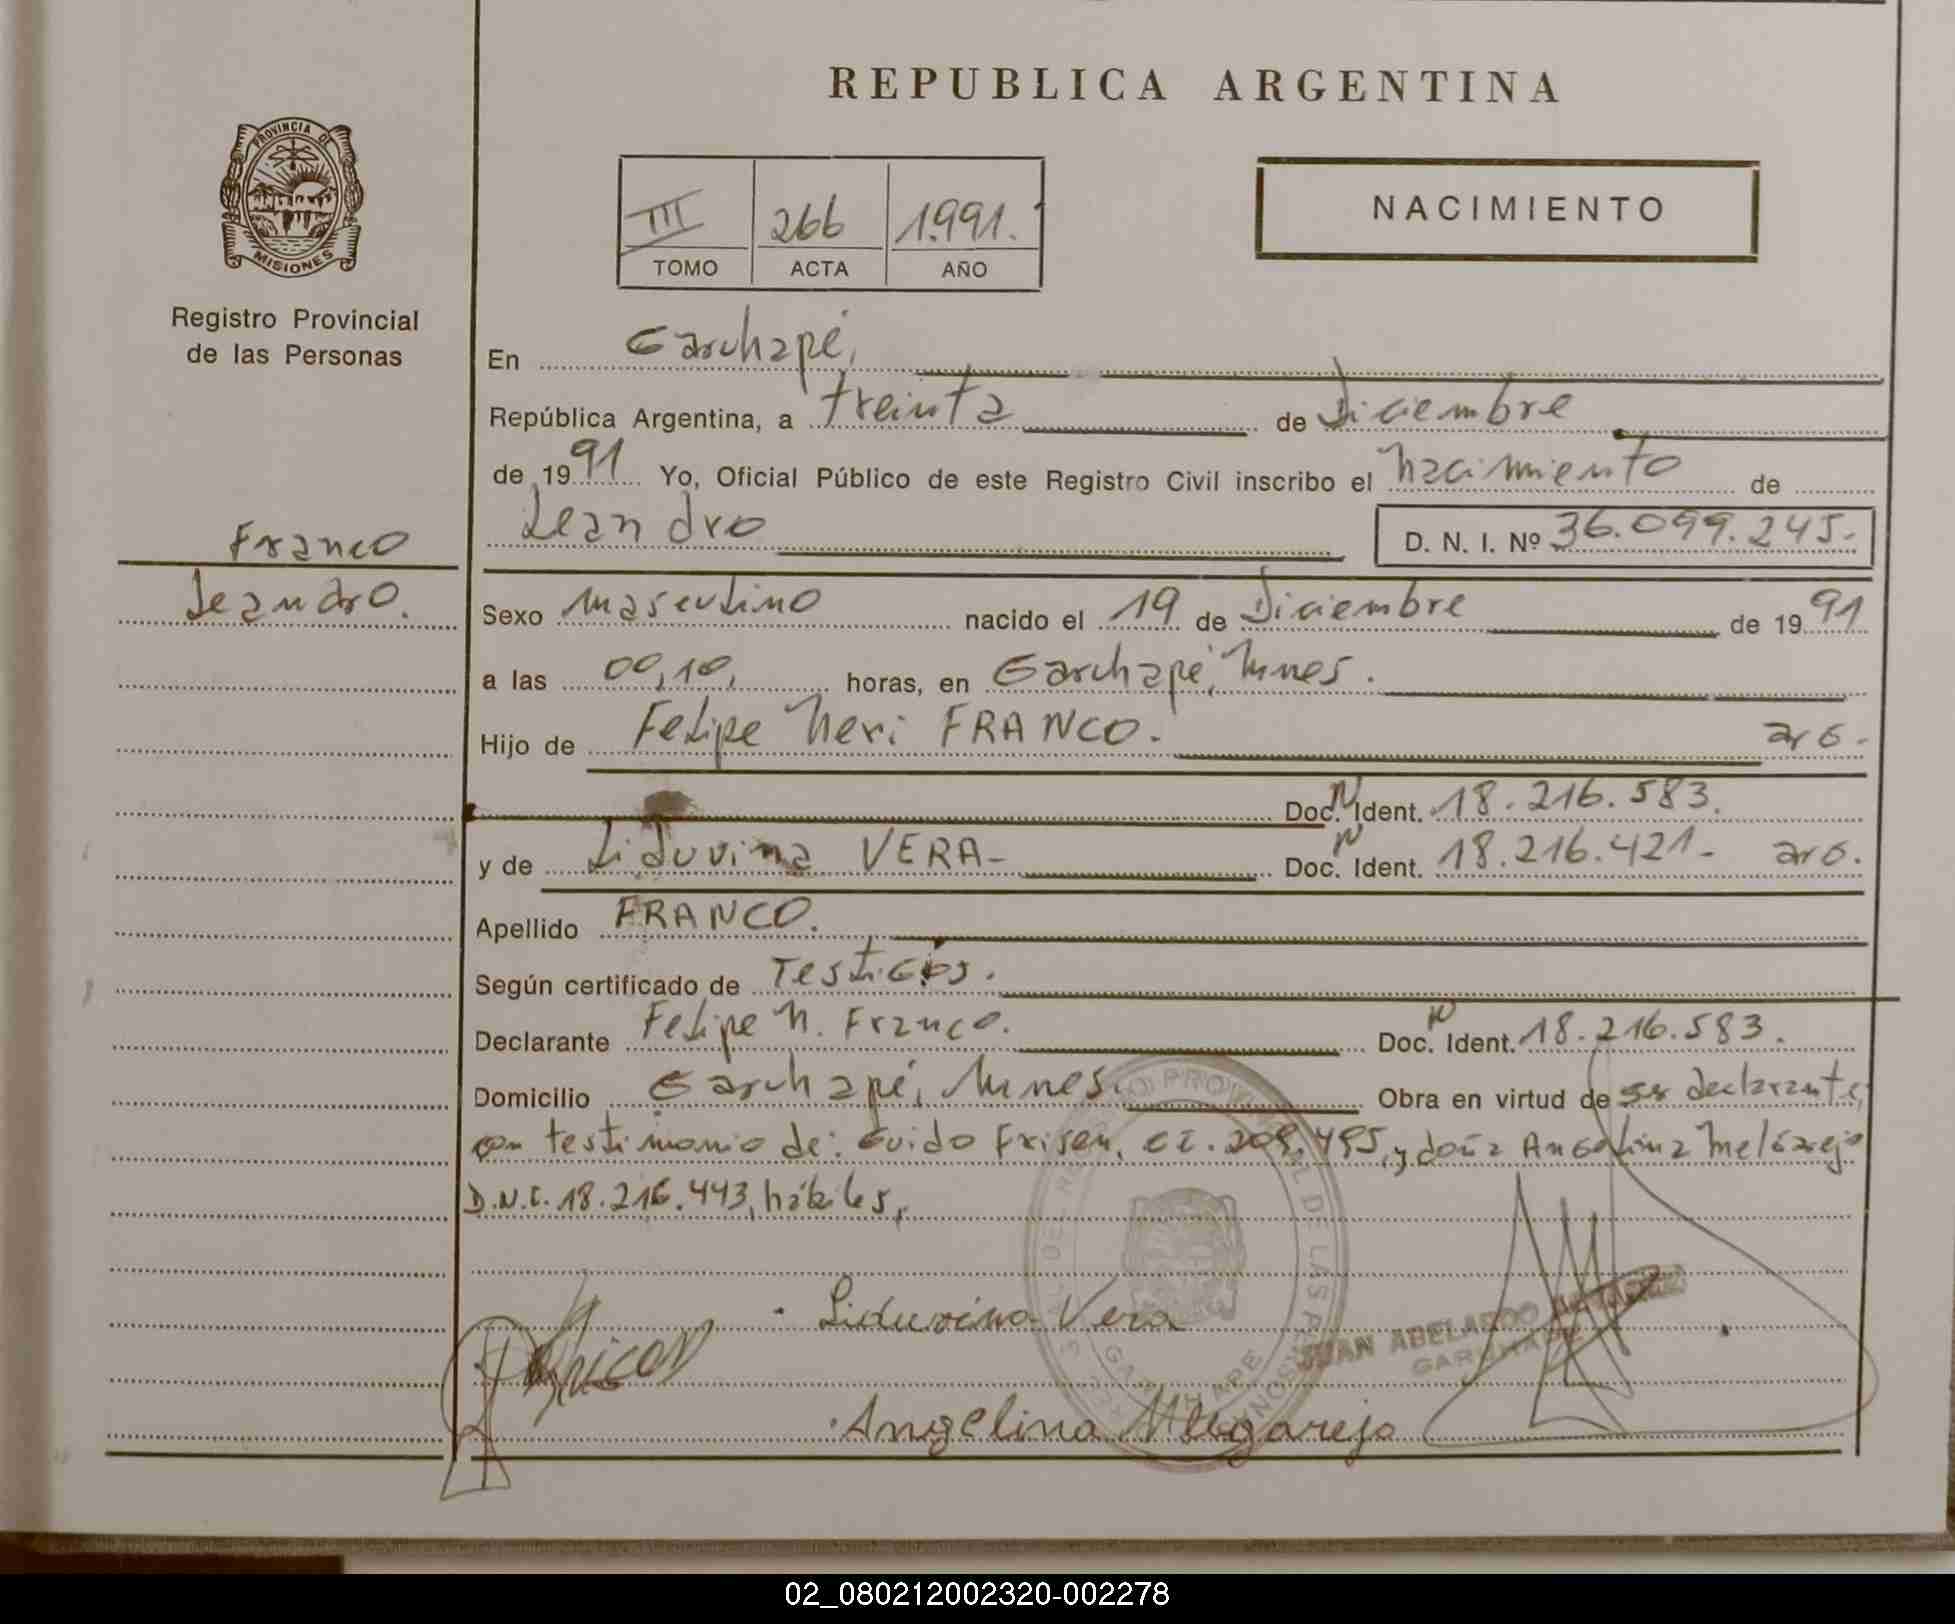 REPUBLICA ARGENTINA
PROVINCIA DE
MISIONES
Registro Provincial
de las Personas
III 266 1.991.
TOMO ACTA AÑO
NACIMIENTO
En Garuhapé,
República Argentina, a treinta de Diciembre
de 1991 Yo, Oficial Público de este Registro Civil inscribo el nacimiento de
Leandro D. N. I. Nº 36.099.245.-
Franco
Leandro.
Sexo masculino nacido el 19 de Diciembre de 1991
a las 00,10, horas, en Garuhapé, Mnes.
Hijo de Felipe Neri FRANCO. arg.
Doc. N Ident. 18.216.583.
y de Liduvina VERA- Doc. N Ident. 18.216.421.- arg.
Apellido FRANCO.
Según certificado de Testigos.
Declarante Felipe N. Franco. Doc. N Ident. 18.216.583.
Domicilio Garuhapé, Mnes. Obra en virtud de ser declarante,
con testimonio de: Guido Frisen, CI. 209.495, y doña Angelina Melgarejo
D.N.I. 18.216.443, hábiles,
Liduvina Vera
JUAN ABELARDO
Angelina Melgarejo
02_080212002320-002278